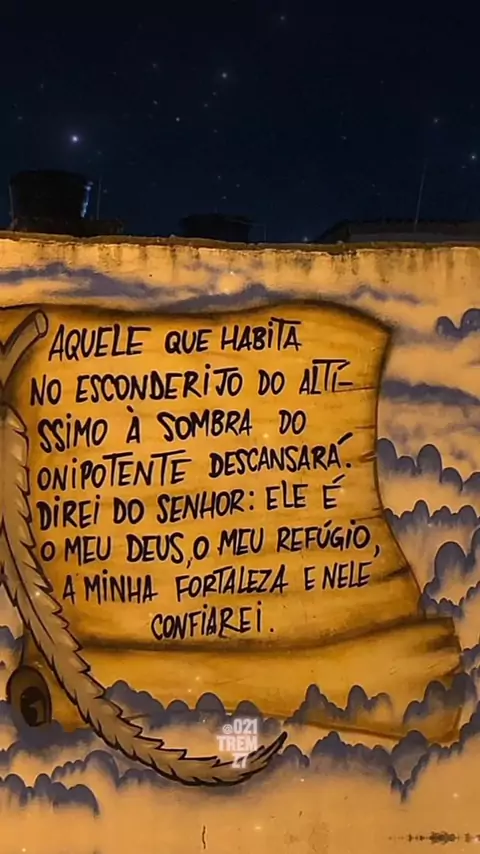 AQUELE QUE HABITA
NO ESCONDERIJO DO ALTÍ-
SSIMO À SOMBRA DO
ONIPOTENTE DESCANSARÁ.
DIREI DO SENHOR: ELE É
O MEU DEUS, O MEU REFÚGIO,
A MINHA FORTALEZA E NELE
CONFIAREI.
@021
TREM
27